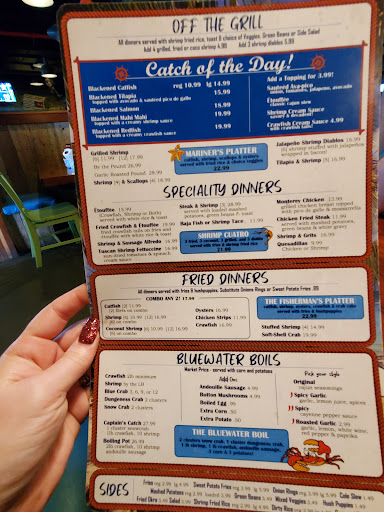 OFF THE GRILL
All dinners served with shrimp fried rice, toast & choice of Veggies, Green Beans or Side Salad
Add 4 grilled, fried or coco shrimp 4.99 Add 3 shrimp diablos 5.99
Catch of the Day!
Blackened Catfish reg 10.99 lg 14.99
Blackened Tilapia 15.99
topped with avocado & sauteed pico de gallo
Blackened Salmon 18.99
Blackened Mahi Mahi 19.99
topped with a creamy shrimp sauce
Blackened Redfish 19.99
topped with a creamy crawfish sauce
Add a Topping for 3.99!
Sautéed Avo-pico
onion, tomatoes, jalapenos, avocado
Etouffee
classic cajun stew
Shrimp Cream Sauce
savory & decadent!
Crawfish Cream Sauce 4.99
with crawfish tails!
Grilled Shrimp
[6] 11.99 [12] 17.99
Garlic Roasted Pound 29.99
Shrimp [4] & Scallops [4] 18.99
MARINER'S PLATTER
catfish, shrimp, scallops & oysters
served with fried rice & choice veggies
22.99
Jalapeño Shrimp Diablos 16.99
[6] shrimp stuffed with jalapeños
wrapped in bacon
Tilapia & Shrimp [5] 16.99
SPECIALITY DINNERS
Etouffee 15.99
(Crawfish, Shrimp or Both)
served with white rice & toast
Fried Crawfish & Etouffee 15.99
fried crawfish tails on fries and
etouffee with white rice & toast
Shrimp & Sausage Alfredo 16.99
Tuscan Shrimp Fettuccine 16.99
sun-dried tomatoes & spinach
cream sauce
Steak & Shrimp [3] 28.99
served with loaded mashed
potatoes, green beans & toast
Baja Fish or Shrimp Tacos 11.99
SHRIMP CUATRO
3 fried, 3 coconut, 3 grilled, and 3 diablo
served with fries & shrimp fried rice
21.99
Monterey Chicken 13.99
grilled chicken breast topped
with pico de gallo & mozzarella
Chicken Fried Steak 11.99
served with mashed potatoes,
green beans & white gravy
Shrimp & Grits 16.99
Quesadillas 9.99
Chicken or Shrimp
FRIED DINNERS
All dinners served with fries & hushpuppies. Substitute Onions Rings or Sweet Potato Fries .99
COMBO ANY 2! 17.99
Catfish [3] 11.99
[2] filets on combo
Shrimp [6] 10.99 [12] 16.99
[6] on combo
Coconut Shrimp [6] 10.99 [12] 16.99
[6] on combo
Oysters 16.99
Chicken Strips 9.99
Crawfish 16.99
THE FISHERMAN'S PLATTER
catfish, shrimp, oysters, crawfish & crab cake
served with fries & hushpuppies
22.99
Stuffed Shrimp [4] 14.99
Soft-Shell Crab 19.99
BLUEWATER BOILS
Market Price - served with corn and potatoes
Crawfish 2lb minimum
Shrimp by the LB
Blue Crab 3, 6, 9, or 12
Dungeness Crab 2 clusters
Snow Crab 2 clusters
Captain's Catch 27.99
1 cluster snowcrab
1lb crawfish, 10 shrimp
Boiling Pot 26.99
2lb crawfish, 10 shrimp
andouille sausage
Add Ons:
Andouille Sausage 4.99
Button Mushrooms 4.99
Boiled Egg .99
Extra Corn .50
Extra Potato .50
Pick your style
Original
cajun seasonings
Spicy Garlic
garlic, lemon juice, spices
Spicy
cayenne pepper sauce
Roasted Garlic 2.99
garlic, lemon, white wine,
red pepper & paprika
THE BLUEWATER BOIL
2 clusters snow crab, 1 cluster dungeness crab,
1 lb crawfish, 10 shrimp, andouille sausage,
2 corn & 3 potatoes!
SIDES
Fries reg 2.99 lg 4.99
Sweet Potato Fries
Onion Rings reg 3.99 lg 5.99
Cole Slaw 1.49
Mashed Potatoes reg 2.99 loaded 3.99
Green Beans 3.49
Mixed Veggies 3.49
Hush Puppies
Fried Okra 3.49
Salad 2.99
Shrimp Fried Rice
Dirty Rice